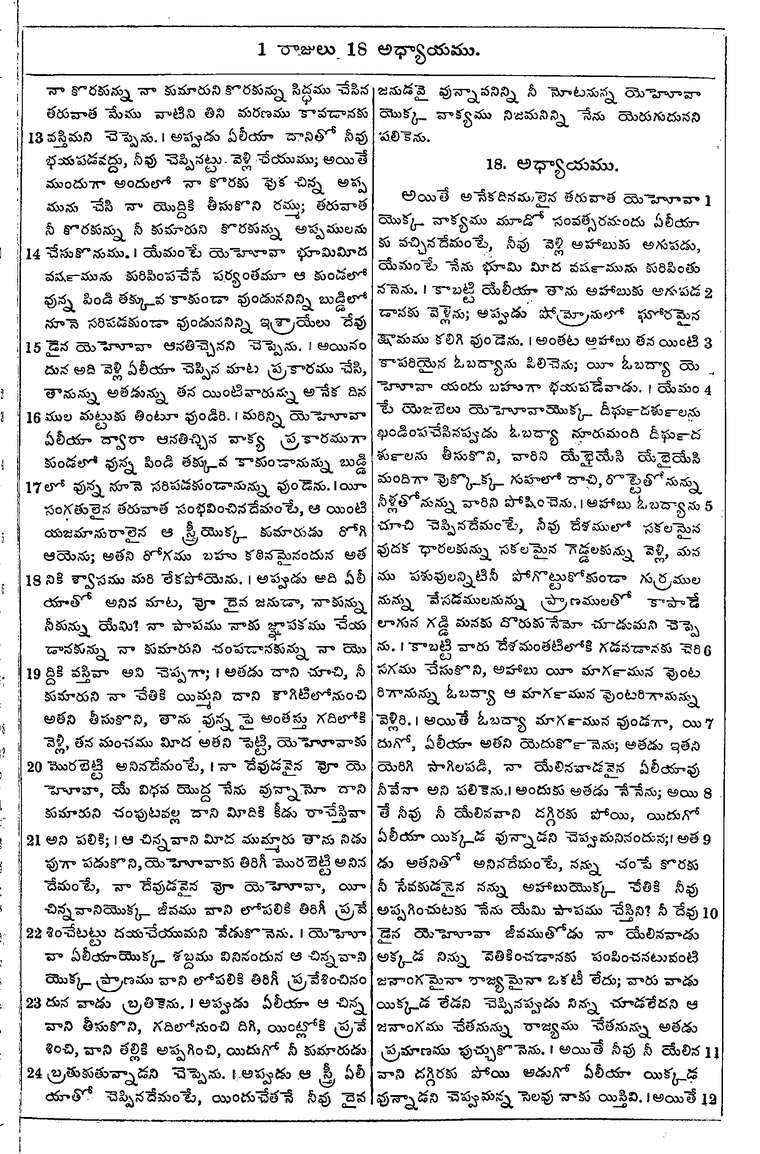 1 రాజులు 18 అధ్యాయము.
నా కొరకున్ను నా కుమారుని కొరకున్ను సిద్ధము చేసిన
తరువాత మేము వాటిని తిని మరణము కావడానకు
13 వస్తిమని చెప్పెను. । అప్పుడు ఏలీయా దానితో నీవు
భయపడవద్దు, నీవు చెప్పినట్టు వెళ్లి చేయుము; అయితే
ముందుగా అందులో నా కొరకు వొక చిన్న అప్ప
మును చేసి నా యొద్దికి తీసుకొని రమ్ము; తరువాత
నీ కొరకున్ను నీ కుమారుని కొరకున్ను అప్పములను
14 చేసుకొనుము. । యేమంటే యెహోవా భూమిమీద
వర్షమును కురిపించచేసే పర్యంతమూ ఆ కుండలో
వున్న పిండి తక్కువ కాకుండా వుండుననిన్ని బుడ్డిలో
నూనె సరిపడకుండా వుండుననిన్ని ఇశ్రాయేలు దేవు
15 డైన యెహోవా ఆనతిచ్చెనని చెప్పెను. । ఆయినం
దున అది వెళ్లి ఏలీయా చెప్పిన మాట ప్రకారము చేసి,
తానున్ను అతడున్ను తన యింటివారున్ను అనేక దిన
16 ముల మట్టుకు తింటూ వుండిరి. । మరిన్ని యెహోవా
ఏలీయా ద్వారా ఆనతిచ్చిన వాక్య ప్రకారముగా
కుండలో వున్న పిండి తక్కువ కాకుండానున్ను బుడ్డి
17 లో వున్న నూనె సరిపడకుండానున్ను వుండెను. । యీ
సంగతులైన తరువాత సంభవించినదేమంటే, ఆ యింటి
యజమానురాలైన ఆ స్త్రీయొక్క కుమారుడు రోగి
ఆయెను; అతని రోగము బహు కఠినమైనందున అత
18 నికి శ్వాసము మరి లేకపోయెను. । అప్పుడు అది ఏలీ
యాతో అనిన మాట, వూ దైవ జనుడా, నాకున్ను
నీకున్ను యేమి? నా పాపము నాకు జ్ఞాపకము చేయ
డానకున్ను నా కుమారుని చంపడానకున్ను నా యొ
19 ద్దికి వస్తివా అని చెప్పగా; । అతడు దాని చూచి, నీ
కుమారుని నా చేతికి యిమ్మని దాని కాగిటిలోనుంచి
అతని తీసుకొని, తాను వున్న పై అంతస్తు గదిలోకి
వెళ్లి, తన మంచము మీద అతని పెట్టి, యెహోవాకు
20 మొరబెట్టి అనినదేమంటే, । నా దేవుడవైన వూ యె
హోవా, యే విధవ యొద్ద నేను వున్నానో దాని
కుమారుని చంపుటవల్ల దాని మీదికి కీడు రాచేస్తివా
21 అని పలికి; । ఆ చిన్నవాని మీద ముమ్మారు తాను నిడు
పుగా పడుకొని, యెహోవాకు తిరిగీ మొరబెట్టి అనిన
దేమంటే, నా దేవుడవైన వూ యెహోవా, యీ
చిన్నవానియొక్క జీవము వాని లోపలికి తిరిగీ ప్రవే
22 శించేటట్టు దయచేయుమని వేడుకొనెను. । యెహో
వా ఏలీయాయొక్క శబ్దము వినినందున ఆ చిన్నవాని
యొక్క ప్రాణము వాని లోపలికి తిరిగీ ప్రవేశించినం
23 దున వాడు బ్రతికెను. । అప్పుడు ఏలీయా ఆ చిన్న
వాని తీసుకొని, గదిలోనుంచి దిగి, యింట్లోకి ప్రవే
శించి, వాని తల్లికి అప్పగించి, యిదుగో నీ కుమారుడు
24 బ్రతుకుతున్నాడని చెప్పెను. । అప్పుడు ఆ స్త్రీ ఏలీ
యాతో చెప్పినదేమంటే, యిందుచేతనే నీవు దైవ
జనుడవై వున్నావనినన్ని నీ నోటనున్న యెహోవా
యొక్క వాక్యము నిజమనిన్ని నేను యెరుగుదునని
పలికెను.
18. అధ్యాయము.
అయితే అనేకదినములైన తరువాత యెహోవా 1
యొక్క వాక్యము మూడో సంవత్సరమందు ఏలీయా
కు వచ్చినదేమంటే, నీవు వెళ్లి అహాబుకు అగుపడు,
యేమంటే నేను భూమి మీద వర్షమును కురిపింతు
ననెను. । కాబట్టి యేలీయా తాను అహాబుకు అగుపడ 2
డానకు వెళ్లెను; అప్పుడు షోమ్రోనులో ఘోరమైన
క్షామము కలిగి వుండెను. । అంతట అహాబు తన యింటి 3
కాపరియైన ఓబద్యాను పిలిచెను; యీ ఓబద్యా యె
హోవా యందు బహుగా భయపడేవాడు. । యేమం 4
టే యెజబెలు యెహోవాయొక్క దీర్ఘదర్శులను
ఖండింపచేసినప్పుడు ఓబద్యా నూరుమంది దీర్ఘద
ర్శులను తీసుకొని, వారిని యేభైయేసి యేభైయేసి
మందిగా వొక్కొక్క గుహలో దాచి, రొట్టెతోనున్ను
నీళ్లతోనున్ను వారిని పోషించెను. । అహాబు ఓబద్యాను 5
చూచి చెప్పినదేమంటే, నీవు దేశములో సకలమైన
వుదక ధారలకున్ను సకలమైన గెడ్డలకున్ను వెళ్లి, మన
ము పశువులన్నిటినీ పోగొట్టుకోకుండా గుర్రముల
నున్ను వేసడములనున్ను ప్రాణములతో కాపాడే
లాగున గడ్డి మనకు దొరుకునేమో చూడుమని చెప్పె
ను. । కాబట్టి వారు దేశమంతటిలోకి గడనడానకు చెరి 6
సగము చేసుకొని, అహాబు యీ మార్గమున వొంట
రిగానున్ను ఓబద్యా ఆ మార్గమున వొంటరిగానున్ను
వెళ్లిరి. । అయితే ఓబద్యా మార్గమున వుండగా, యి 7
దుగో, ఏలీయా అతని యెదుర్కొనెను; అతడు ఇతని
యెరిగి సాగిలపడి, నా యేలినవాడవైన ఏలీయావు
నీవేనా అని పలికెను. । అందుకు అతడు నేనేను; అయి 8
తే నీవు నీ యేలినవాని దగ్గిరకు పోయి, యిదుగో
ఏలీయా యిక్కడ వున్నాడని చెప్పుమనినందున; । అత 9
డు అతనితో అనినదేమంటే, నన్ను చంపే కొరకు
నీ సేవకుడనైన నన్ను అహాబుయొక్క చేతికి నీవు
అప్పగించుటకు నేను యేమి పాపము చేస్తిని? నీ దేవు 10
డైన యెహోవా జీవముతోడు నా యేలినవాడు
అక్కడ నిన్ను వెతికించడానకు పంపించనటువంటి
జనాంగమైనా రాజ్యమైనా ఒకటీ లేదు; వారు వాడు
యిక్కడ లేడని చెప్పినప్పుడు నిన్ను చూడలేదని ఆ
జనాంగము చేతనున్ను రాజ్యము చేతనున్ను అతడు
ప్రమాణము పుచ్చుకొనెను. । అయితే నీవు నీ యేలిన 11
వాని దగ్గిరకు పోయి అడుగో ఏలీయా యిక్కడ
వున్నాడని చెప్పుమన్న సెలవు నాకు యిస్తివి. । అయితే 12